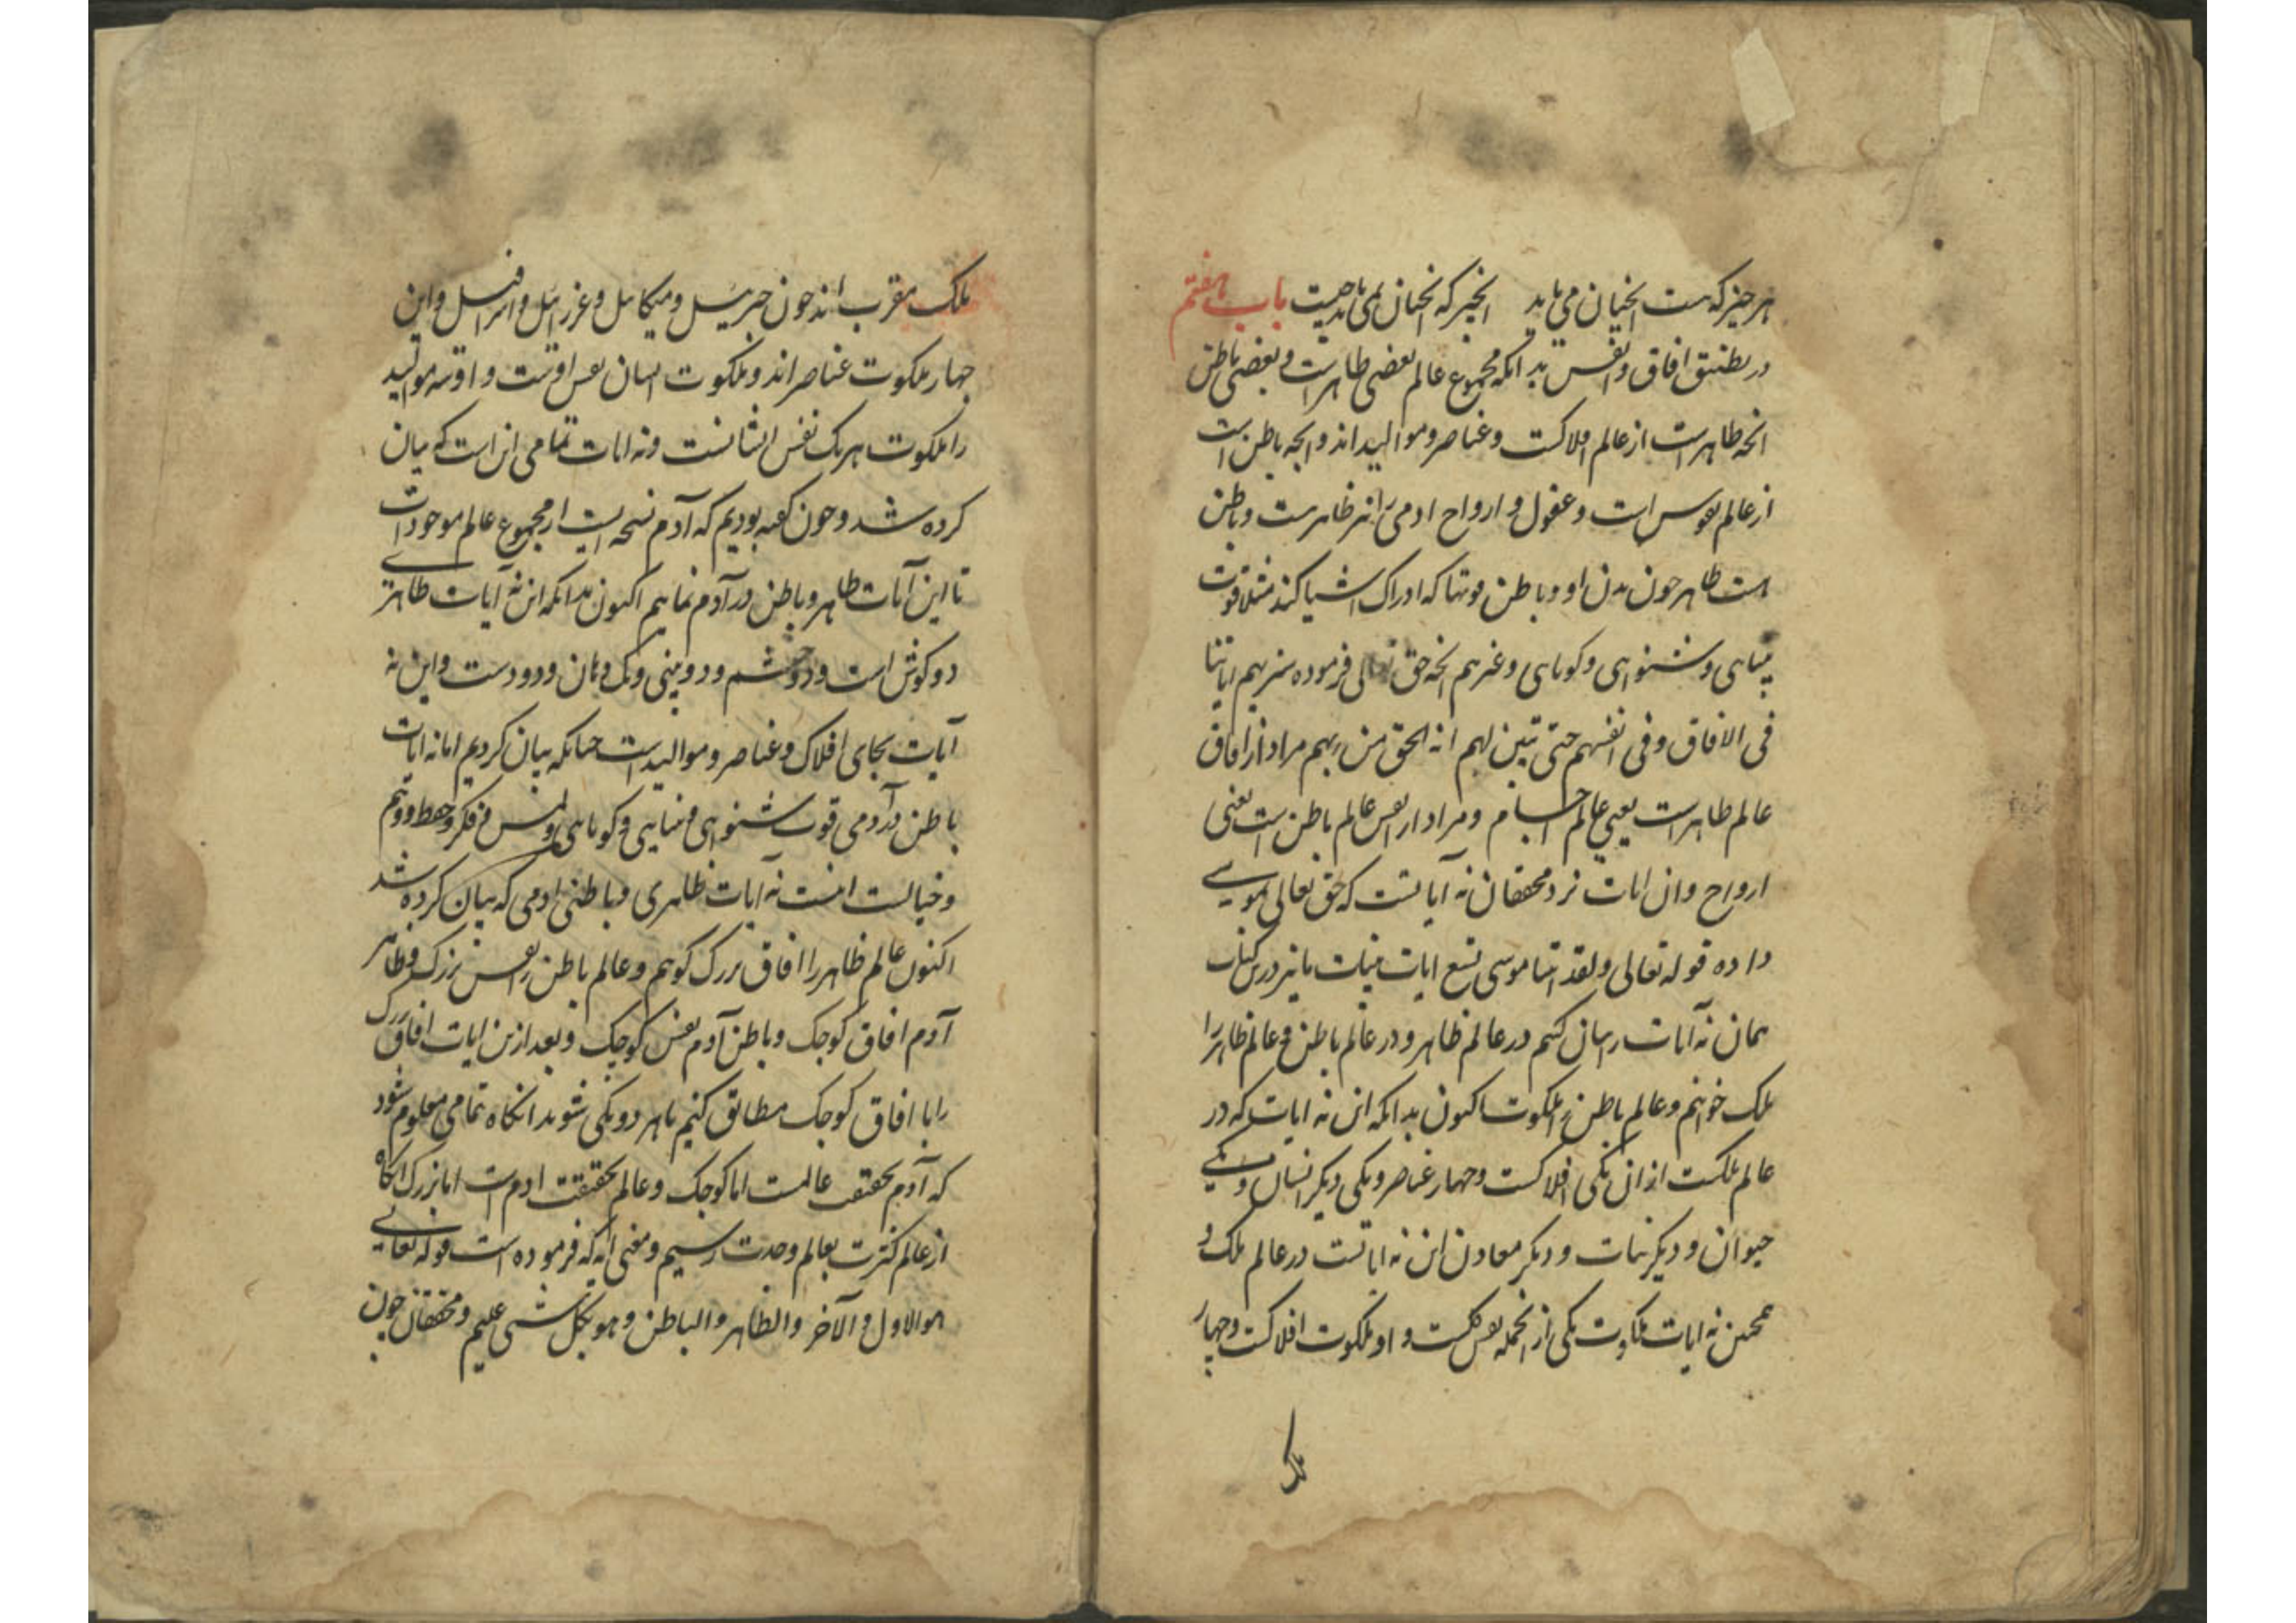 هر چیز که هست انچنان می باید انچیز که انچنان نمی باید نیست باب هفتم
در تطبیق افاق و انفس بدانکه مجموع عالم بعضی ظاهرست و بعضی باطن
انچه ظاهرست از عالم افلاکست و عناصر و موالیداند و انچه باطن است
از عالم نفوس است و عقول و ارواح ادمی را نیز ظاهرست و باطن
است ظاهر چون بدن او و باطن قوتها که ادراک اشیا کند مثلا قوت
بینایی و شنوایی و کویایی و غیرهم انچه حق تعالی فرموده سنریهم ایاتنا
فی الافاق و فی انفسهم حتی تبین لهم انه الحق من ربهم مراد از افاق
عالم ظاهرست یعنی عالم اجسام و مراد از انفس عالم باطن است یعنی
ارواح و ان ایات نزد محققان نه آیاتست که حق تعالی بموسی
داده قوله تعالی ولقد اتینا موسی تسع ایات بینات ما نیز درین کتاب
همان نه آیات را بیان کنیم در عالم ظاهر و در عالم باطن و عالم ظاهر را
ملک خوانیم و عالم باطن را ملکوت اکنون بدانکه این نه ایات که در
عالم ملکست از ان یکی افلاکست و چهار عناصر و یکی دیکر انسان و یکی
حیوان و دیکر نبات و دیکر معادن این نه ایاتست در عالم ملک و
همچنین نه ایات ملکوت یکی از انجمله نفس کلست و او ملکوت افلاکست و چهار
ملک
ملک مقرب اند چون جبرئیل و میکائیل و عزرائیل و اسرافیل و این
چهار ملکوت عناصراند و ملکوت انسان نفس اوست و او سه موالید
را ملکوت هریک نفس ایشانست و نه ایات تمامی این است که بیان
کرده شد و چون کفته بودیم که آدم نسخه ایست از مجموع عالم موجودات
تا این آیات ظاهر و باطن در آدم نماییم اکنون بدانکه این نه آیات ظاهر
دو کوش است و دو چشم و دو بینی و یک دهان و دو دست و این نه
آیات بجای افلاک و عناصر و موالیدست چنانکه بیان کردیم اما نه ایات
باطن در آدمی قوت شنوایی و بینایی و کویایی و لمس و فکر و حفظ و وهم
و خیالست اینست نه آیات ظاهری و باطنی ادمی که بیان کرده شد
اکنون عالم ظاهر را افاق بزرک کوییم و عالم باطن را نفس بزرک و ظاهر
آدم افاق کوچک و باطن آدم نفس کوچک و بعد ازین ایات افاق بزرک
را با افاق کوچک مطابق کنیم تا هر دو یکی شوند انکاه تمامی معلوم شود
که آدم بحقیقت عالمست اما کوچک و عالم بحقیقت ادم است اما بزرک انکاه
از عالم کثرت بعالم وحدت رسیم و معنی آنکه فرموده است قوله تعالی
هو الاول و الآخر و الظاهر و الباطن و هو بکل شی علیم و محققان چون